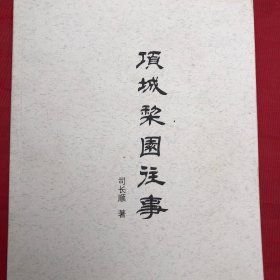 項城梨園往事
司长顺 著